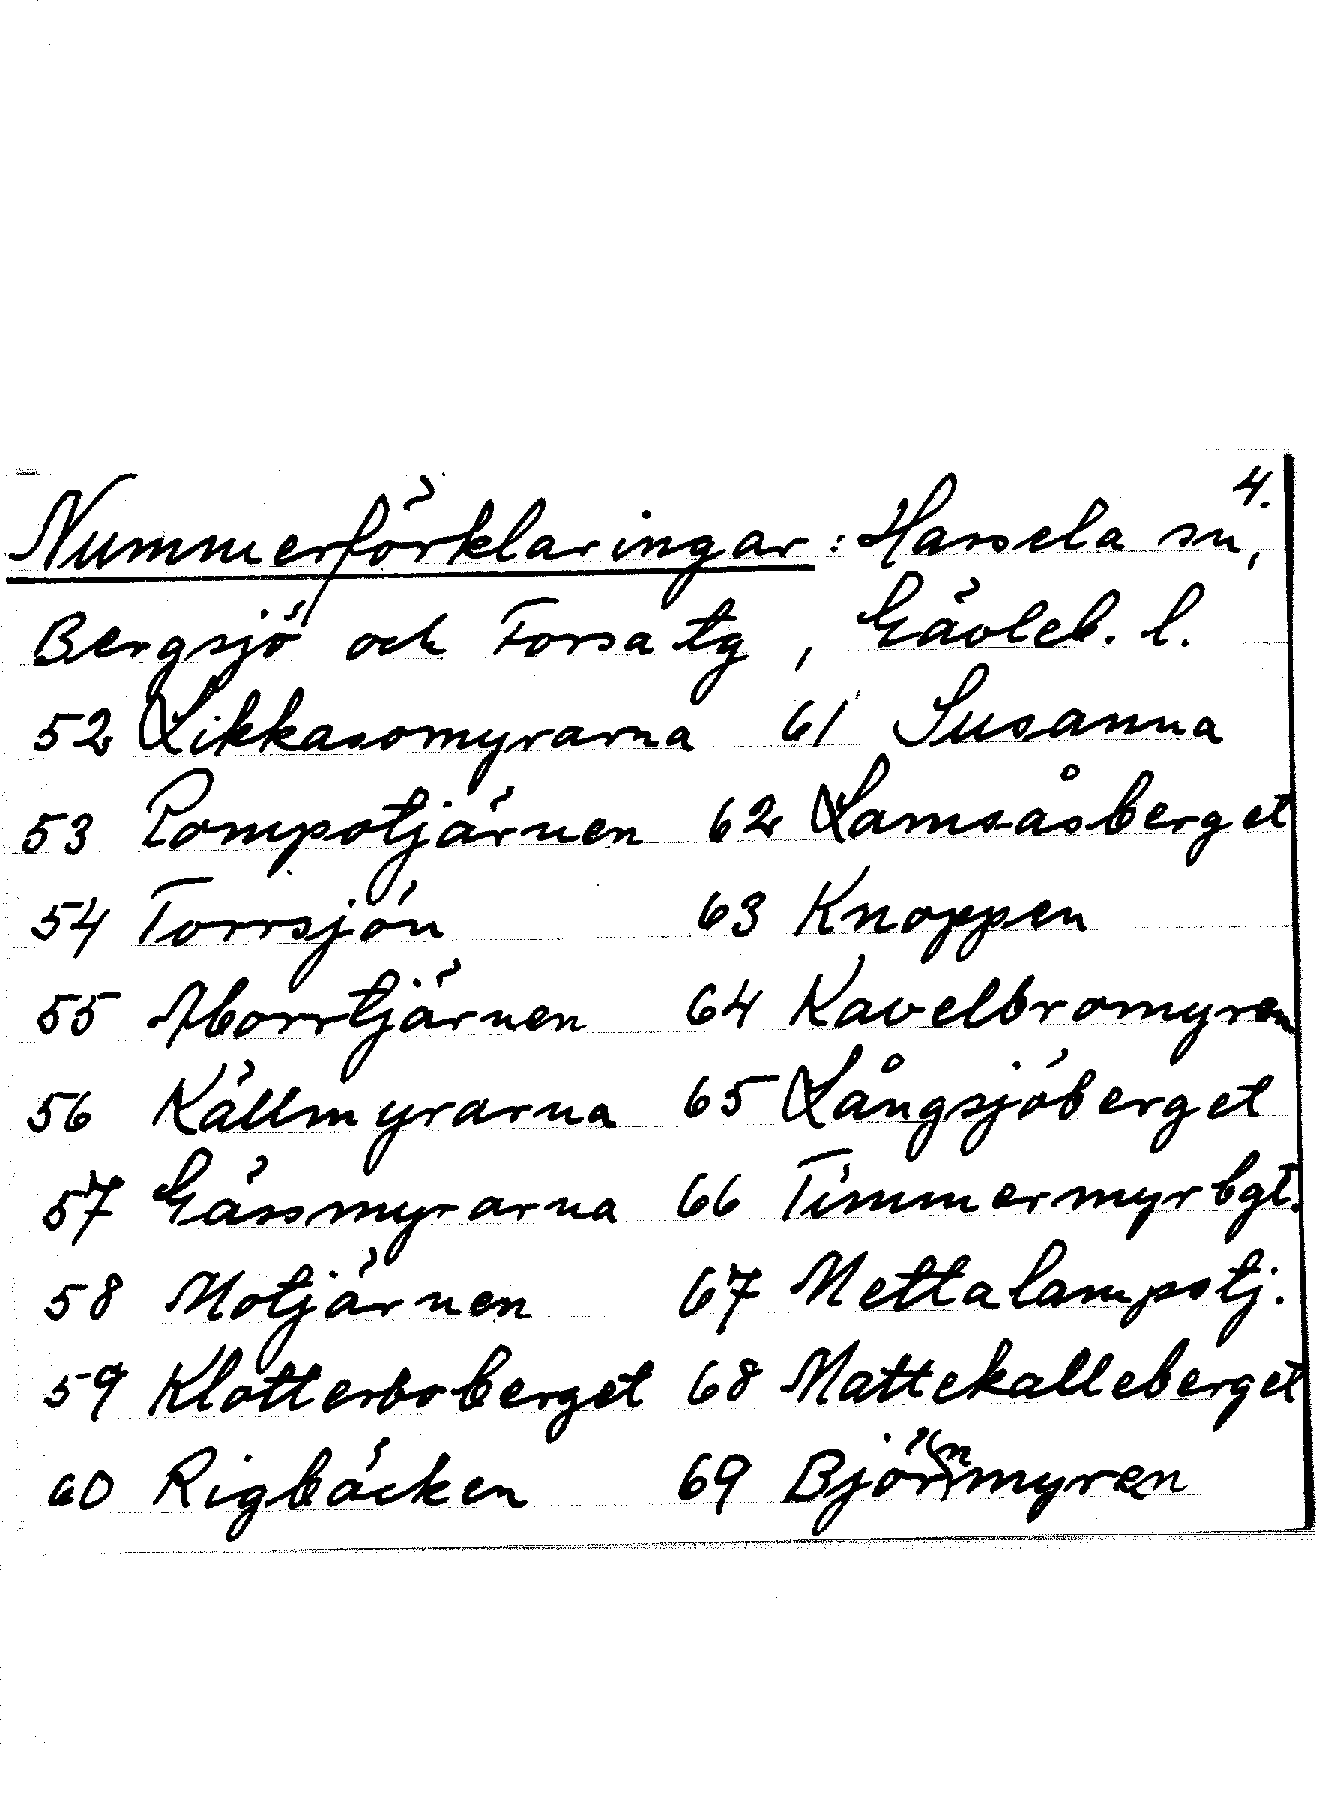 4.
Nummerförklaringar: Hassela sn,
Bergsjö och Forsa tg, Gävleb. l.
52 Likkasomyrarna 61 Susanna
53 Pompotjärnen 62 Lamsåsberget
54 Torrsjön 63 Knoppen
55 Aborrtjärnen 64 Kavelbromyren
56 Källmyrarna 65 Långsjöberget
57 Gässmyrarna 66 Timmermyrbgt.
58 Motjärnen 67 Mettalampstj.
59 Klotterboberget 68 Mattekalleberget
60 Rigbäcken 69 Björnmyren